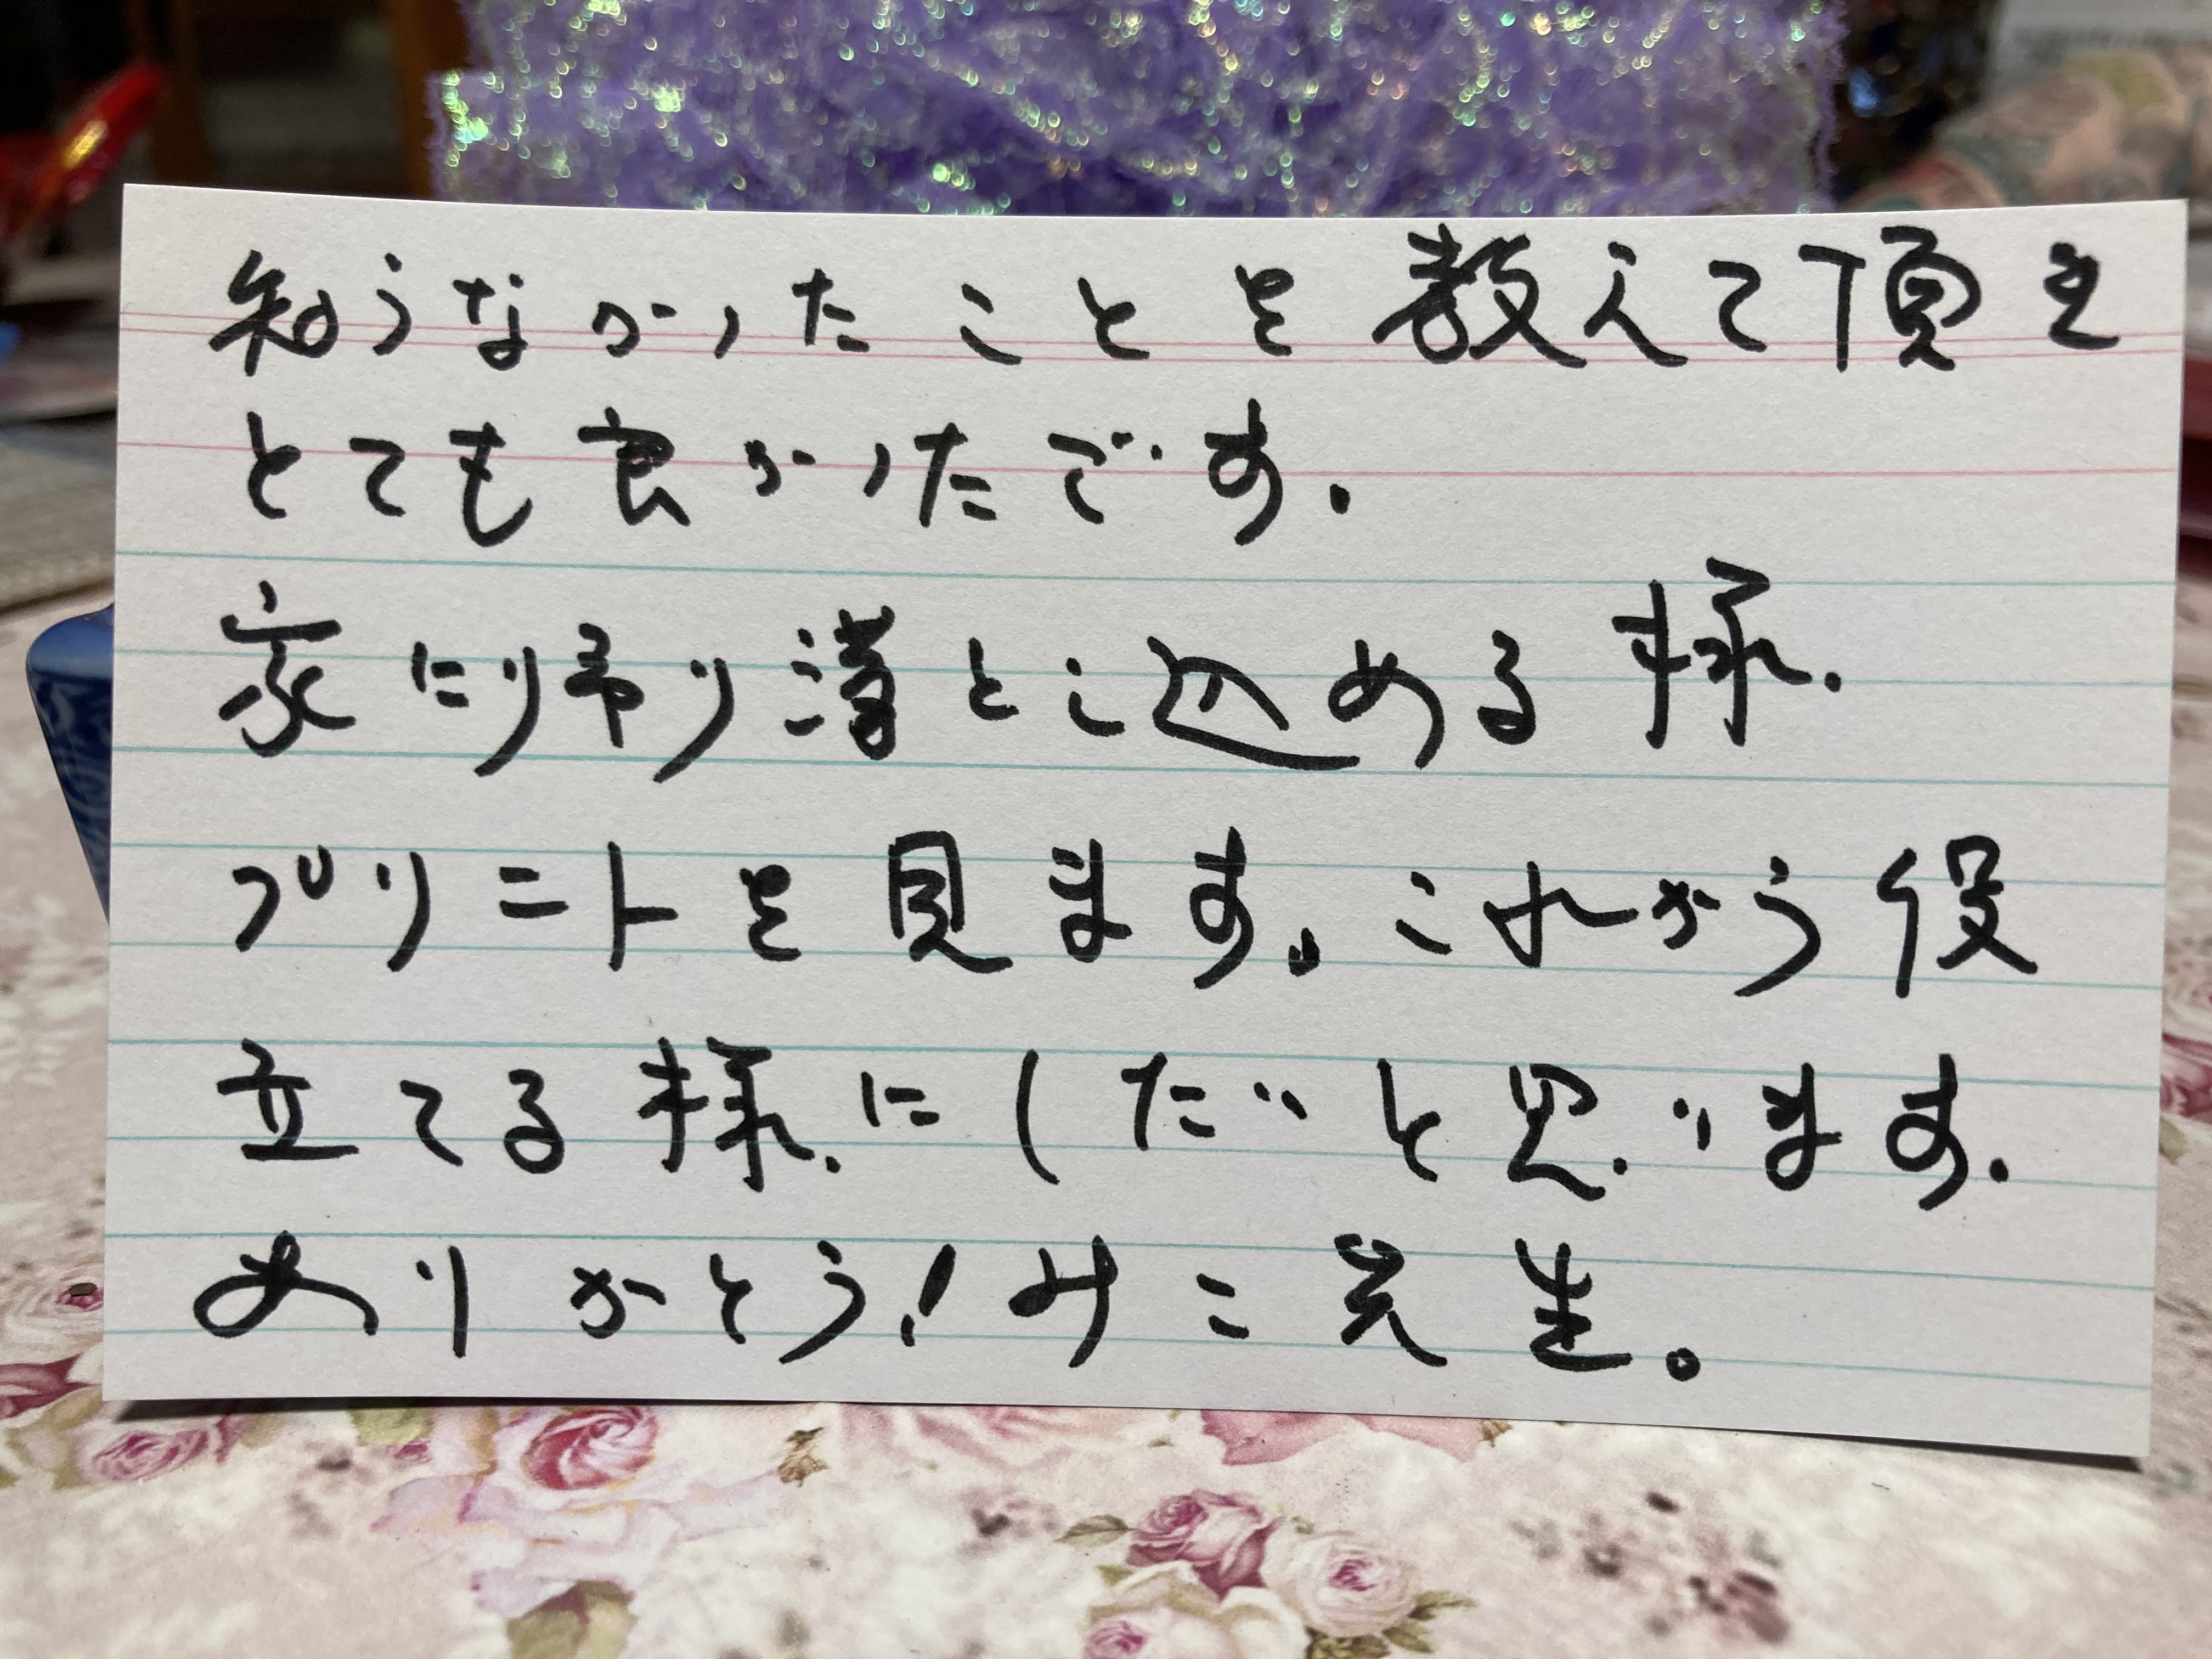 知らなかったことを教えて頂き
とても良かったです.
家に帰り落とし込める様.
プリントを見ます。これから役
立てる様.にしたいと思います.
ありがとう!みこ先生。